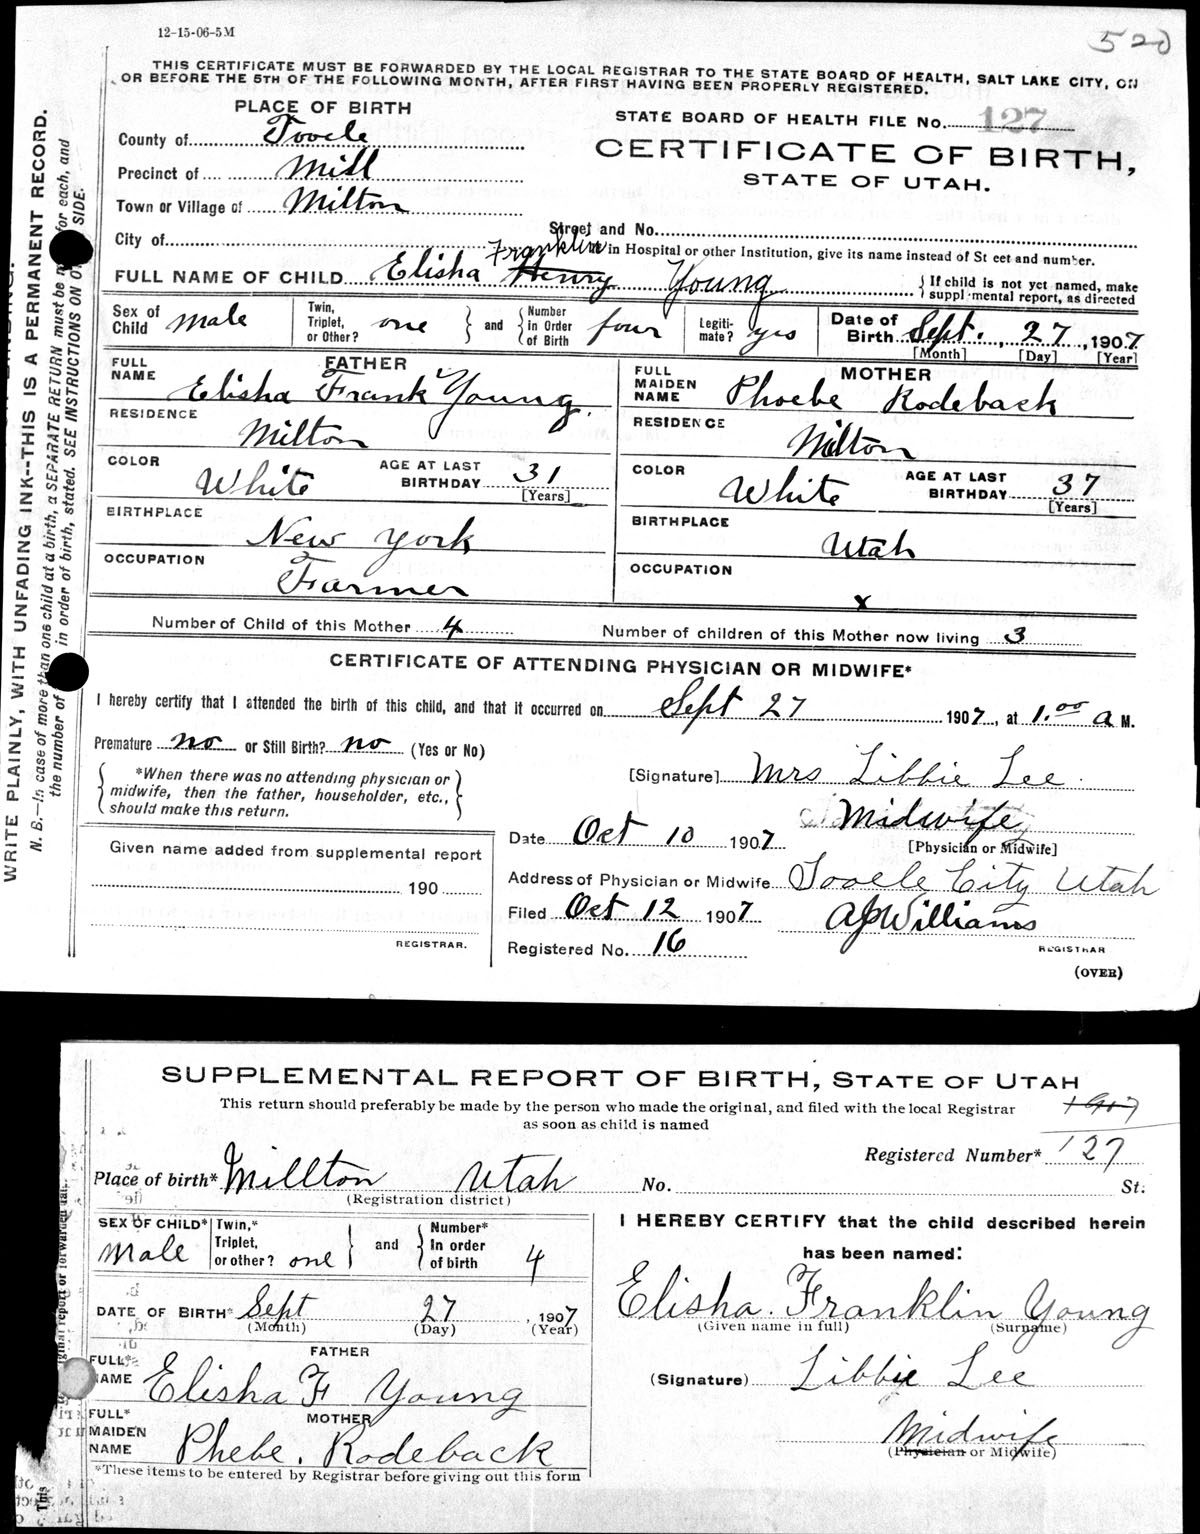 12-15-06-5M
520
THIS CERTIFICATE MUST BE FORWARDED BY THE LOCAL REGISTRAR TO THE STATE BOARD OF HEALTH, SALT LAKE CITY, ON
OR BEFORE THE 5TH OF THE FOLLOWING MONTH, AFTER FIRST HAVING BEEN PROPERLY REGISTERED.
PLACE OF BIRTH
STATE BOARD OF HEALTH FILE No. 127
County of Tooele
CERTIFICATE OF BIRTH,
Precinct of Mill
STATE OF UTAH.
Town or Village of Milton
Street and No.
City of
in Hospital or other Institution, give its name instead of St eet and number.
Franklin
FULL NAME OF CHILD Elisha Henry Young
If child is not yet named, make
suppl mental report, as directed
Sex of Child male
Twin, Triplet, or Other? one
and
Number in Order of Birth four
Legiti-mate? yes
Date of Birth Sept. 27, 1907
[Month] [Day] [Year]
FATHER
FULL NAME Elisha Frank Young.
RESIDENCE Milton
COLOR White
AGE AT LAST BIRTHDAY 31
[Years]
BIRTHPLACE New York
OCCUPATION Farmer
MOTHER
FULL MAIDEN NAME Phoebe Rodeback
RESIDENCE Milton
COLOR White
AGE AT LAST BIRTHDAY 37
[Years]
BIRTHPLACE Utah
OCCUPATION x
Number of Child of this Mother 4
Number of children of this Mother now living 3
CERTIFICATE OF ATTENDING PHYSICIAN OR MIDWIFE*
I hereby certify that I attended the birth of this child, and that it occurred on Sept 27 1907, at 1.00 a M.
Premature no or Still Birth? no (Yes or No)
*When there was no attending physician or
midwife, then the father, householder, etc.,
should make this return.
[Signature] Mrs Libbie Lee.
Midwife
[Physician or Midwife]
Date Oct 10 1907
Address of Physician or Midwife Tooele City Utah
Filed Oct 12 1907
AJWilliams
REGISTRAR
Registered No. 16
(OVER)
Given name added from supplemental report
190
REGISTRAR.
WRITE PLAINLY, WITH UNFADING INK--THIS IS A PERMANENT RECORD.
N. B.—In case of more than one child at a birth, a SEPARATE RETURN must be for each, and
the number of in order of birth, stated. SEE INSTRUCTIONS ON SIDE.
SUPPLEMENTAL REPORT OF BIRTH, STATE OF UTAH
This return should preferably be made by the person who made the original, and filed with the local Registrar
as soon as child is named
1917
Registered Number* 127
Place of birth* Millton Utah No. St.
(Registration district)
SEX OF CHILD* Male
Twin,* Triplet, or other? one
and
Number* In order of birth 4
DATE OF BIRTH* Sept 27, 1907
(Month) (Day) (Year)
FATHER
FULL* NAME Elisha F Young
MOTHER
FULL* MAIDEN NAME Phebe. Rodeback
*These items to be entered by Registrar before giving out this form
I HEREBY CERTIFY that the child described herein
has been named:
Elisha. Franklin Young
(Given name in full) (Surname)
(Signature) Libbie Lee
Midwife
(Physician or Midwife)